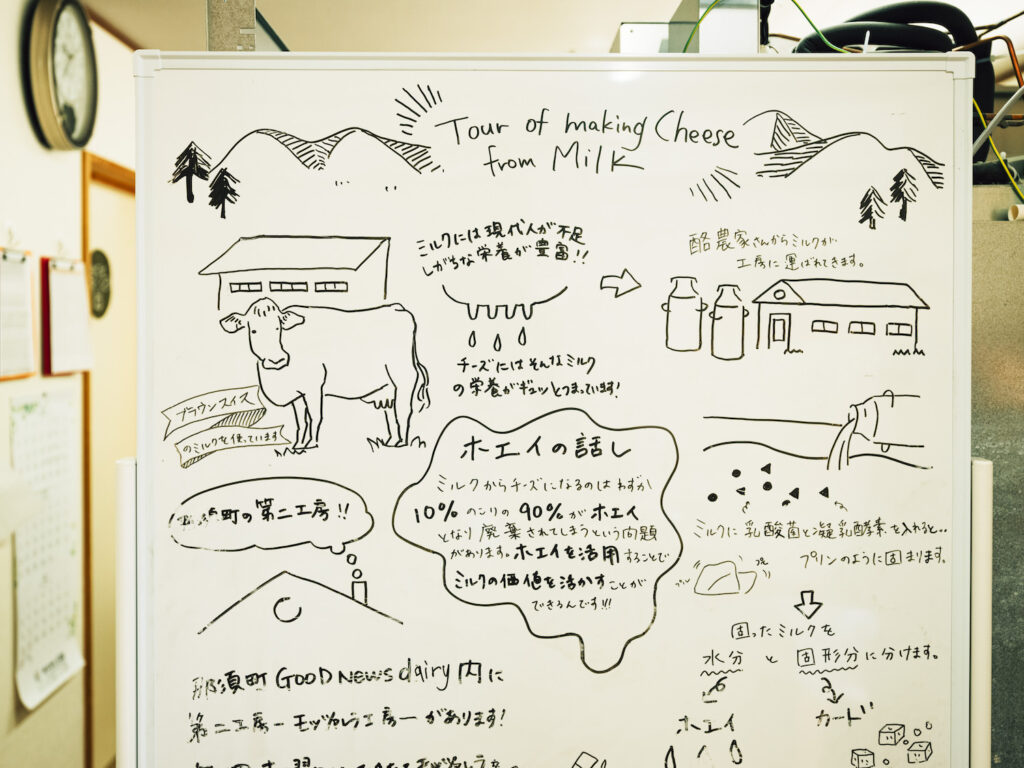 Tour of making Cheese
from Milk
ミルクには現代人が不足
しがちな栄養が豊富!!
チーズにはそんなミルク
の栄養がギュッとつまっています!
酪農家さんからミルクが
工房に運ばれてきます。
ブラウンスイス
のミルクを使っています
町の第二工房!!
ホエイの話し
ミルクからチーズになるのはわずか
10% のこりの90%がホエイ
となり廃棄されてしまうという問題
があります。ホエイを活用することで
ミルクの価値を活かすことが
できるんです!!!
ミルクに乳酸菌と凝乳酵素を入れると..
プリンのように固まります。
固ったミルクを
水分と固形分に分けます。
ホエイ
カード
那須町 GOOD NEWS dairy 内に
第二工房ーモッツァレラ工房ーがあります!